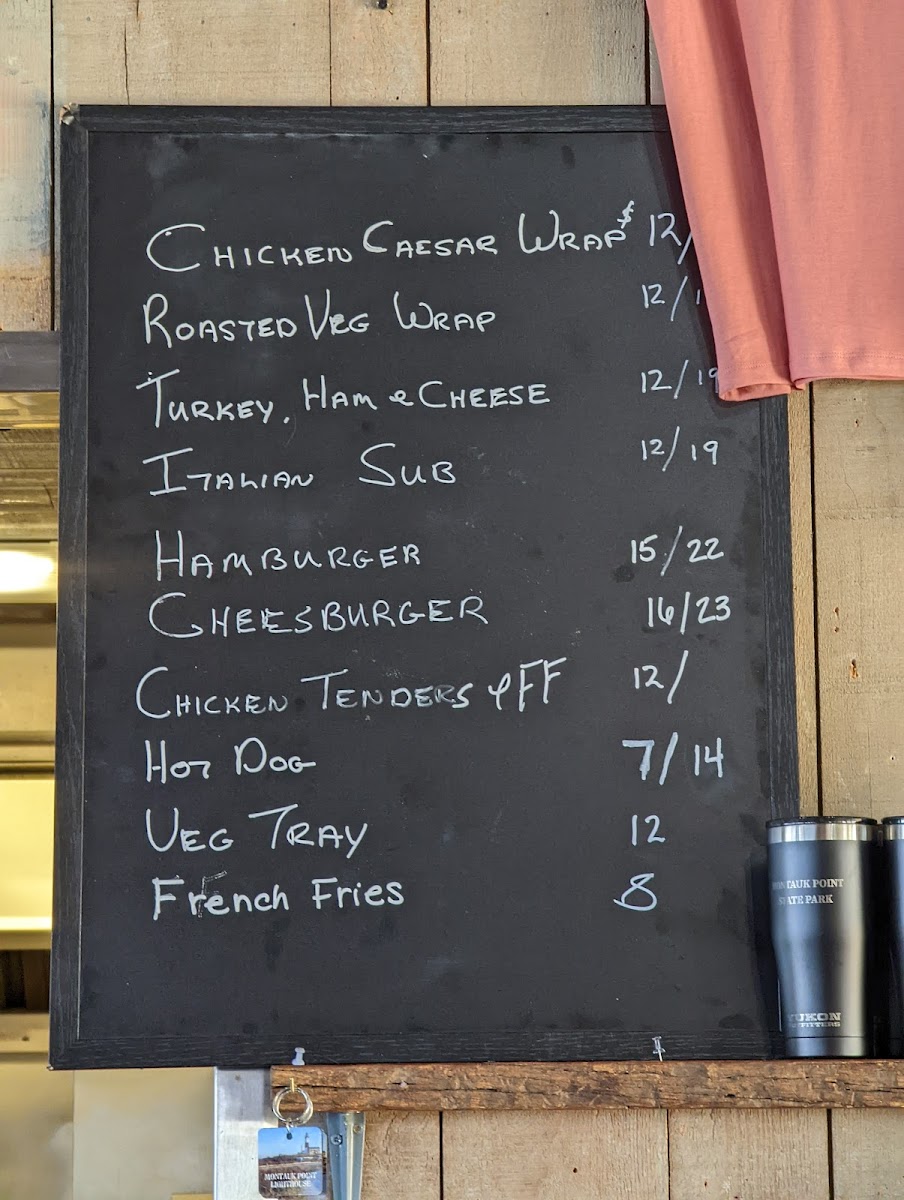 CHICKEN CAESAR WRAP $ 12/
ROASTED VEG WRAP 12/1
TURKEY, HAM & CHEESE 12/19
ITALIAN SUB 12/19
HAMBURGER 15/22
CHEESBURGER 16/23
CHICKEN TENDERS & FF 12/
HOT DOG 7/14
VEG TRAY 12
French Fries 8
MONTAUK POINT
STATE PARK
YUKON
OUTFITTERS
MONTAUK POINT
LIGHTHOUSE